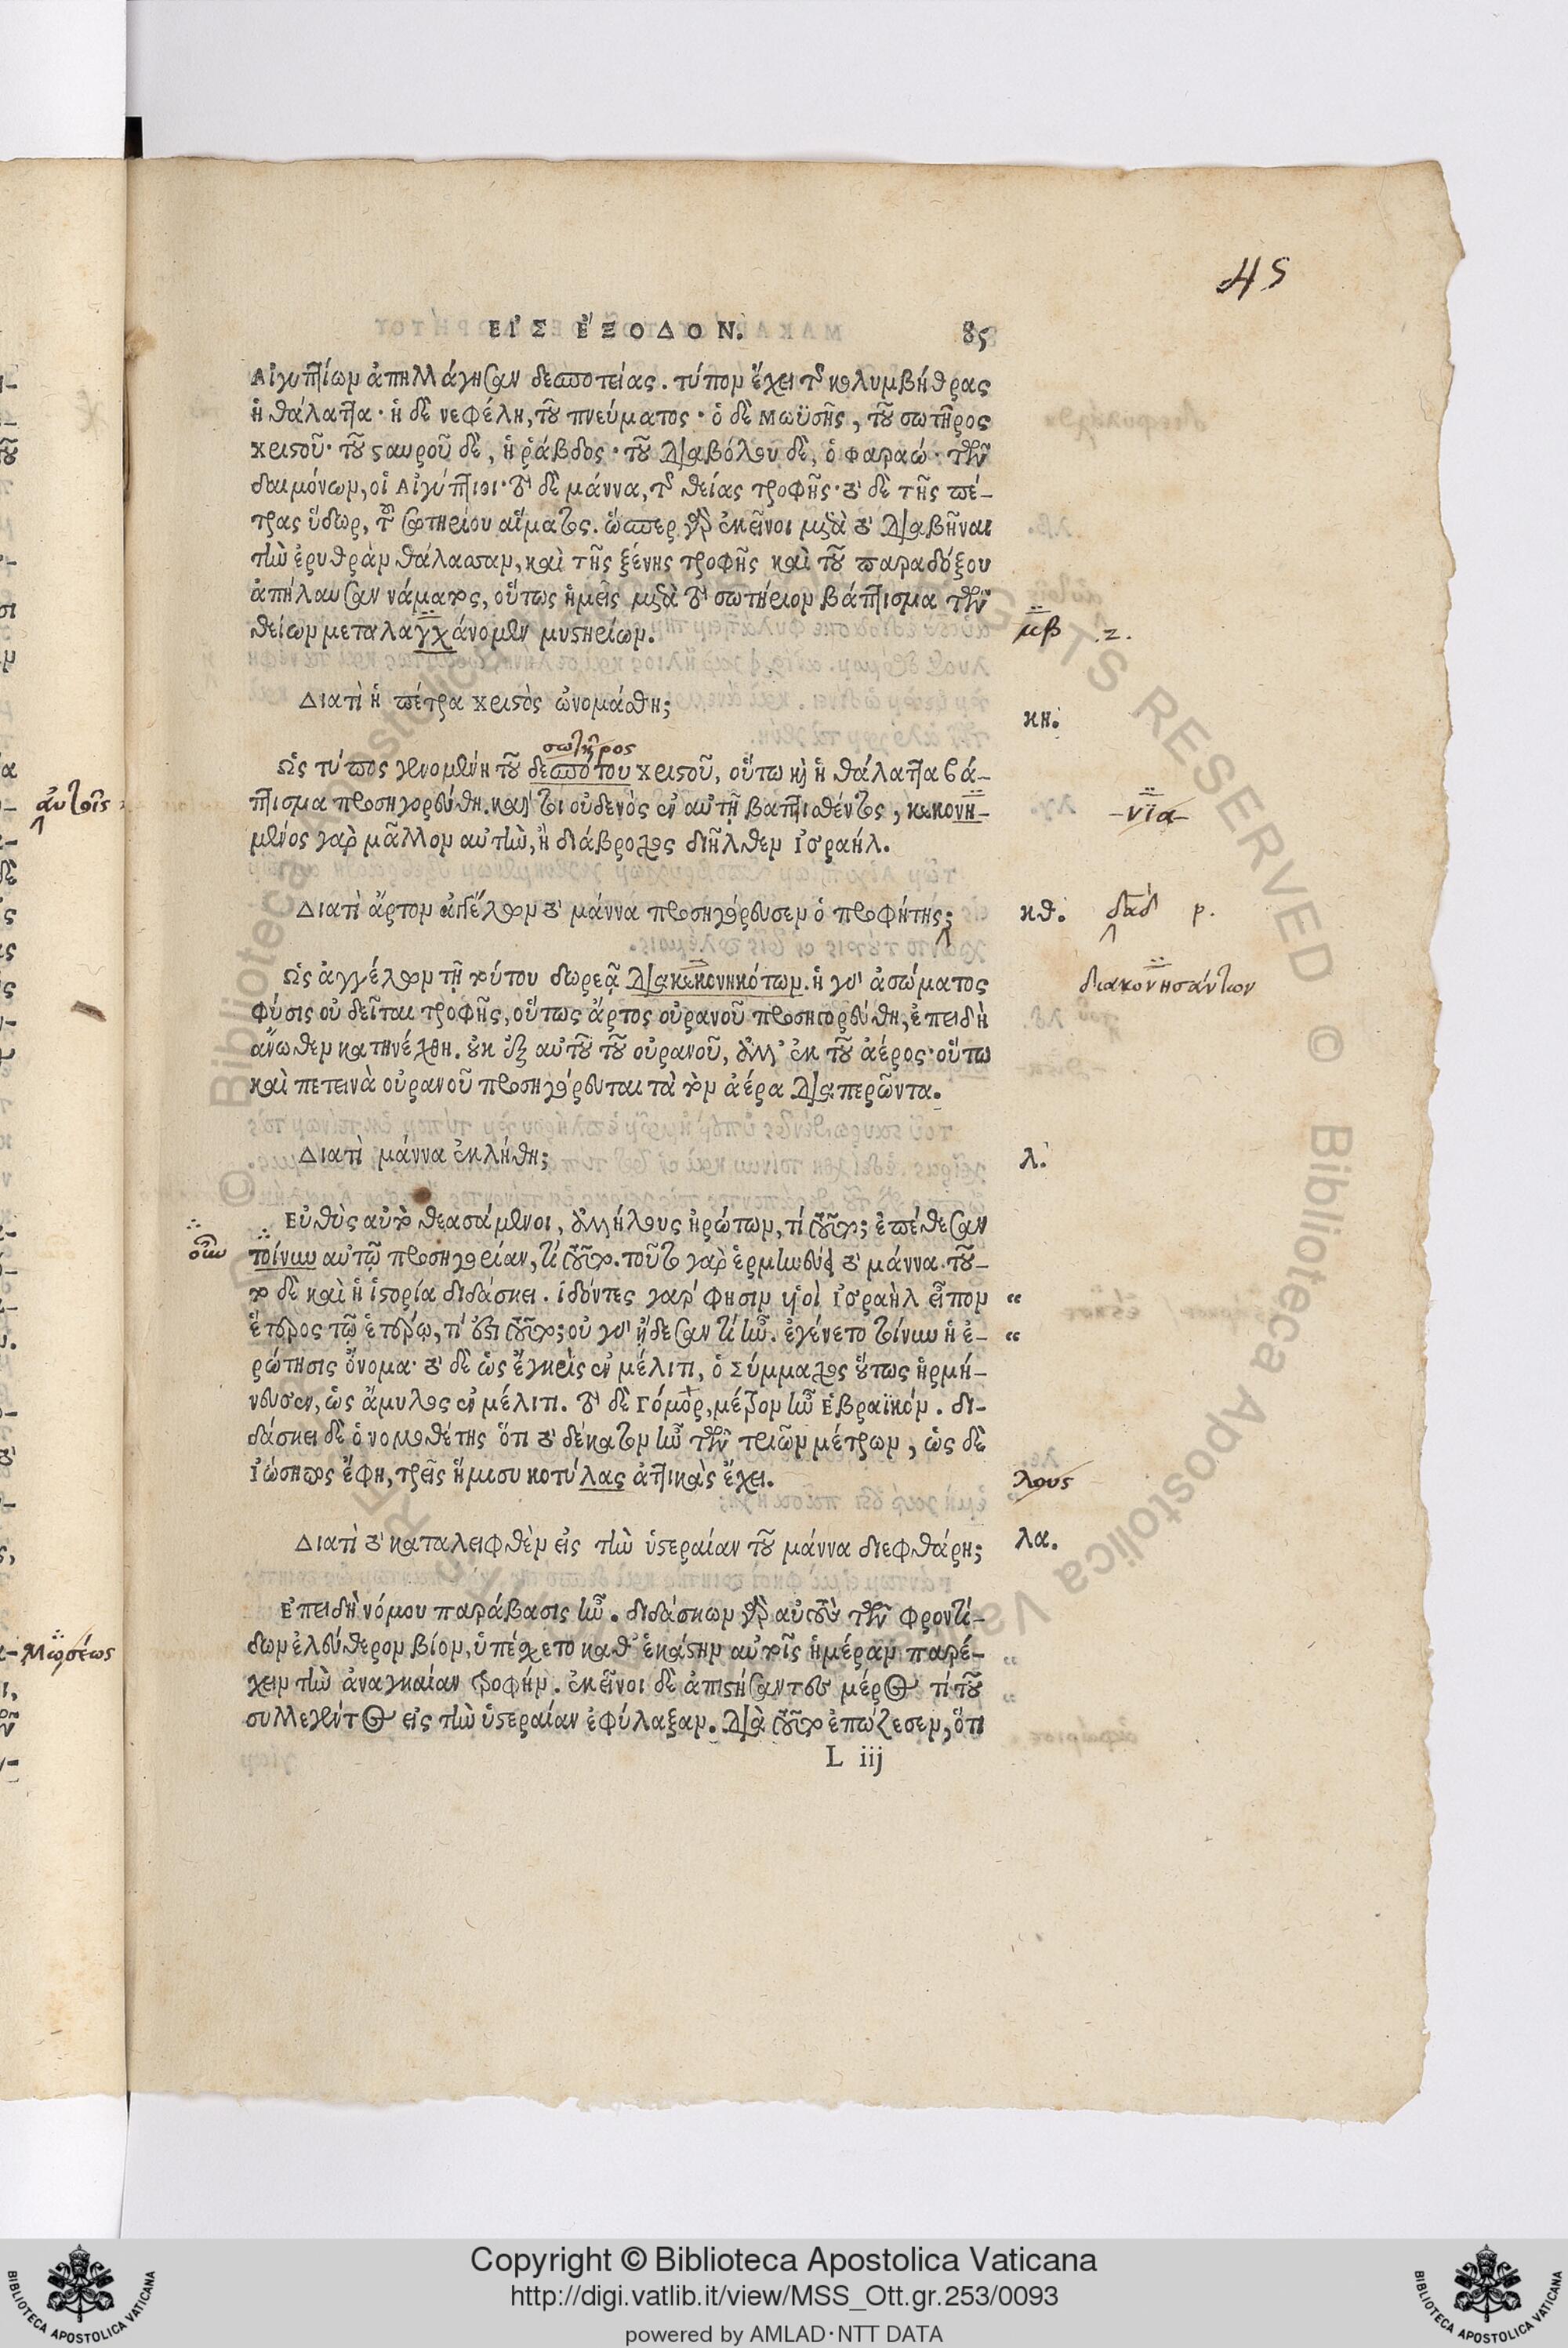 45
ΕΙ᾿Σ ἘΞΟΔΟΝ. 85
Αἰγυπτίων ἀπηλλάγησαν δεσποτείας. τύπον ἔχει τῆς κολυμβήθρας
ἡ θάλαττα· ἡ δὲ νεφέλη, τοῦ πνεύματος· ὁ δὲ Μωϋσῆς, τοῦ σωτῆρος
χριστοῦ· τοῦ σταυροῦ δὲ, ἡ ῥάβδος· τοῦ διαβόλου δὲ, ὁ φαραώ· τῶν
δαιμόνων, οἱ Αἰγύπτιοι· τὸ δὲ μάννα, τῆς θείας τροφῆς· τὸ δὲ τῆς πέ-
τρας ὕδωρ, τοῦ σωτηρίου αἵματος. ὥσπερ γὰρ ἐκεῖνοι μετὰ τὸ διαβῆναι
τὴν ἐρυθρὰν θάλασσαν, καὶ τῆς ξένης τροφῆς καὶ τοῦ παραδόξου
ἀπήλαυσαν νάματος, οὕτως ἡμεῖς μετὰ τὸ σωτήριον βάπτισμα τῶν
θείων μεταλαγχάνομεν μυστηρίων.
μβ .z.
Διατὶ ἡ πέτρα χριστὸς ὠνομάσθη;
κη.
σωτῆρος
Ὡς τύπος γενομένη τοῦ δεσπότου χριστοῦ, οὕτω καὶ ἡ θάλαττα βά-
πτισμα προσηγορεύθη. καί τοι οὐδενὸς ἐν αὐτῇ βαπτισθέντος, κεκονη-
-νῖα-
αὐτοῖς
μένος γὰρ μᾶλλον αὐτὴν, ἢ διάβροχος διῆλθεν Ἰσραήλ.
Διατὶ ἄρτον ἀγγέλων τὸ μάννα προσηγόρευσεν ὁ προφήτης;
κθ. δαδ ρ.
Ὡς ἀγγέλων τῇ τούτου δωρεᾷ διακεκονηκότων. ἡ γὰρ ἀσώματος
διακονησάντων
φύσις οὐ δεῖται τροφῆς, οὕτως ἄρτος οὐρανοῦ προσηγορεύθη, ἐπειδὴ
ἄνωθεν κατηνέχθη. οὐκ ἐξ αὐτοῦ τοῦ οὐρανοῦ, ἀλλ᾿ ἐκ τοῦ ἀέρος· οὕτω
καὶ πετεινὰ οὐρανοῦ προσηγόρευται τὰ τὸν ἀέρα διαπερῶντα.
Διατὶ μάννα ἐκλήθη;
λ.
Εὐθὺς αὐτὸ θεασάμενοι, ἀλλήλους ἠρώτων, τί τοῦτο; ἐπέθεσαν
οὖν
τοίνυν αὐτῷ προσηγορίαν, τί τοῦτο. τοῦτο γὰρ ἑρμηνεύει τὸ μάννα. τοῦ-
το δὲ καὶ ἡ ἱστορία διδάσκει. ἰδόντες γάρ φησιν υἱοὶ Ἰσραὴλ εἶπον “
ἕτερος τῷ ἑτέρῳ, τί ἐστι τοῦτο; οὐ γὰρ ᾔδεσαν τί ἦν. ἐγένετο τοίνυν ἡ ἐ- “
ρώτησις ὄνομα· τὸ δὲ ὡς ἔγκρις ἐν μέλιτι, ὁ Σύμμαχος οὕτως ἡρμή-
νευσεν, ὡς ἄμυλος ἐν μέλιτι. τὸ δὲ Γόμορ, μέτρον ἦν Ἑβραϊκόν. δι-
δάσκει δὲ ὁ νομοθέτης ὅτι τὸ δέκατον ἦν τῶν τριῶν μέτρων, ὡς δὲ
Ἰώσηπος ἔφη, τρεῖς ἥμισυ κοτύλας ἀττικὰς ἔχει.
λους
Διατὶ τὸ καταλειφθὲν εἰς τὴν ὑστεραίαν τοῦ μάννα διεφθάρη;
λα.
Ἐπειδὴ νόμου παράβασις ἦν. διδάσκων γὰρ αὐτοὺς τῶν φροντί-
δων ἐλεύθερον βίον, ὑπέσχετο καθ᾿ ἑκάστην αὐτοῖς ἡμέραν παρέ-
Μωσέως
χειν τὴν ἀναγκαίαν τροφήν. ἐκεῖνοι δὲ ἀπιστήσαντες μέρος τί τοῦ
συλλεγέντος εἰς τὴν ὑστεραίαν ἐφύλαξαν. διὰ τοῦτο ἐπώζεσεν, ὅτι
L iij
Copyright © Biblioteca Apostolica Vaticana
http://digi.vatlib.it/view/MSS_Ott.gr.253/0093
powered by AMLAD·NTT DATA